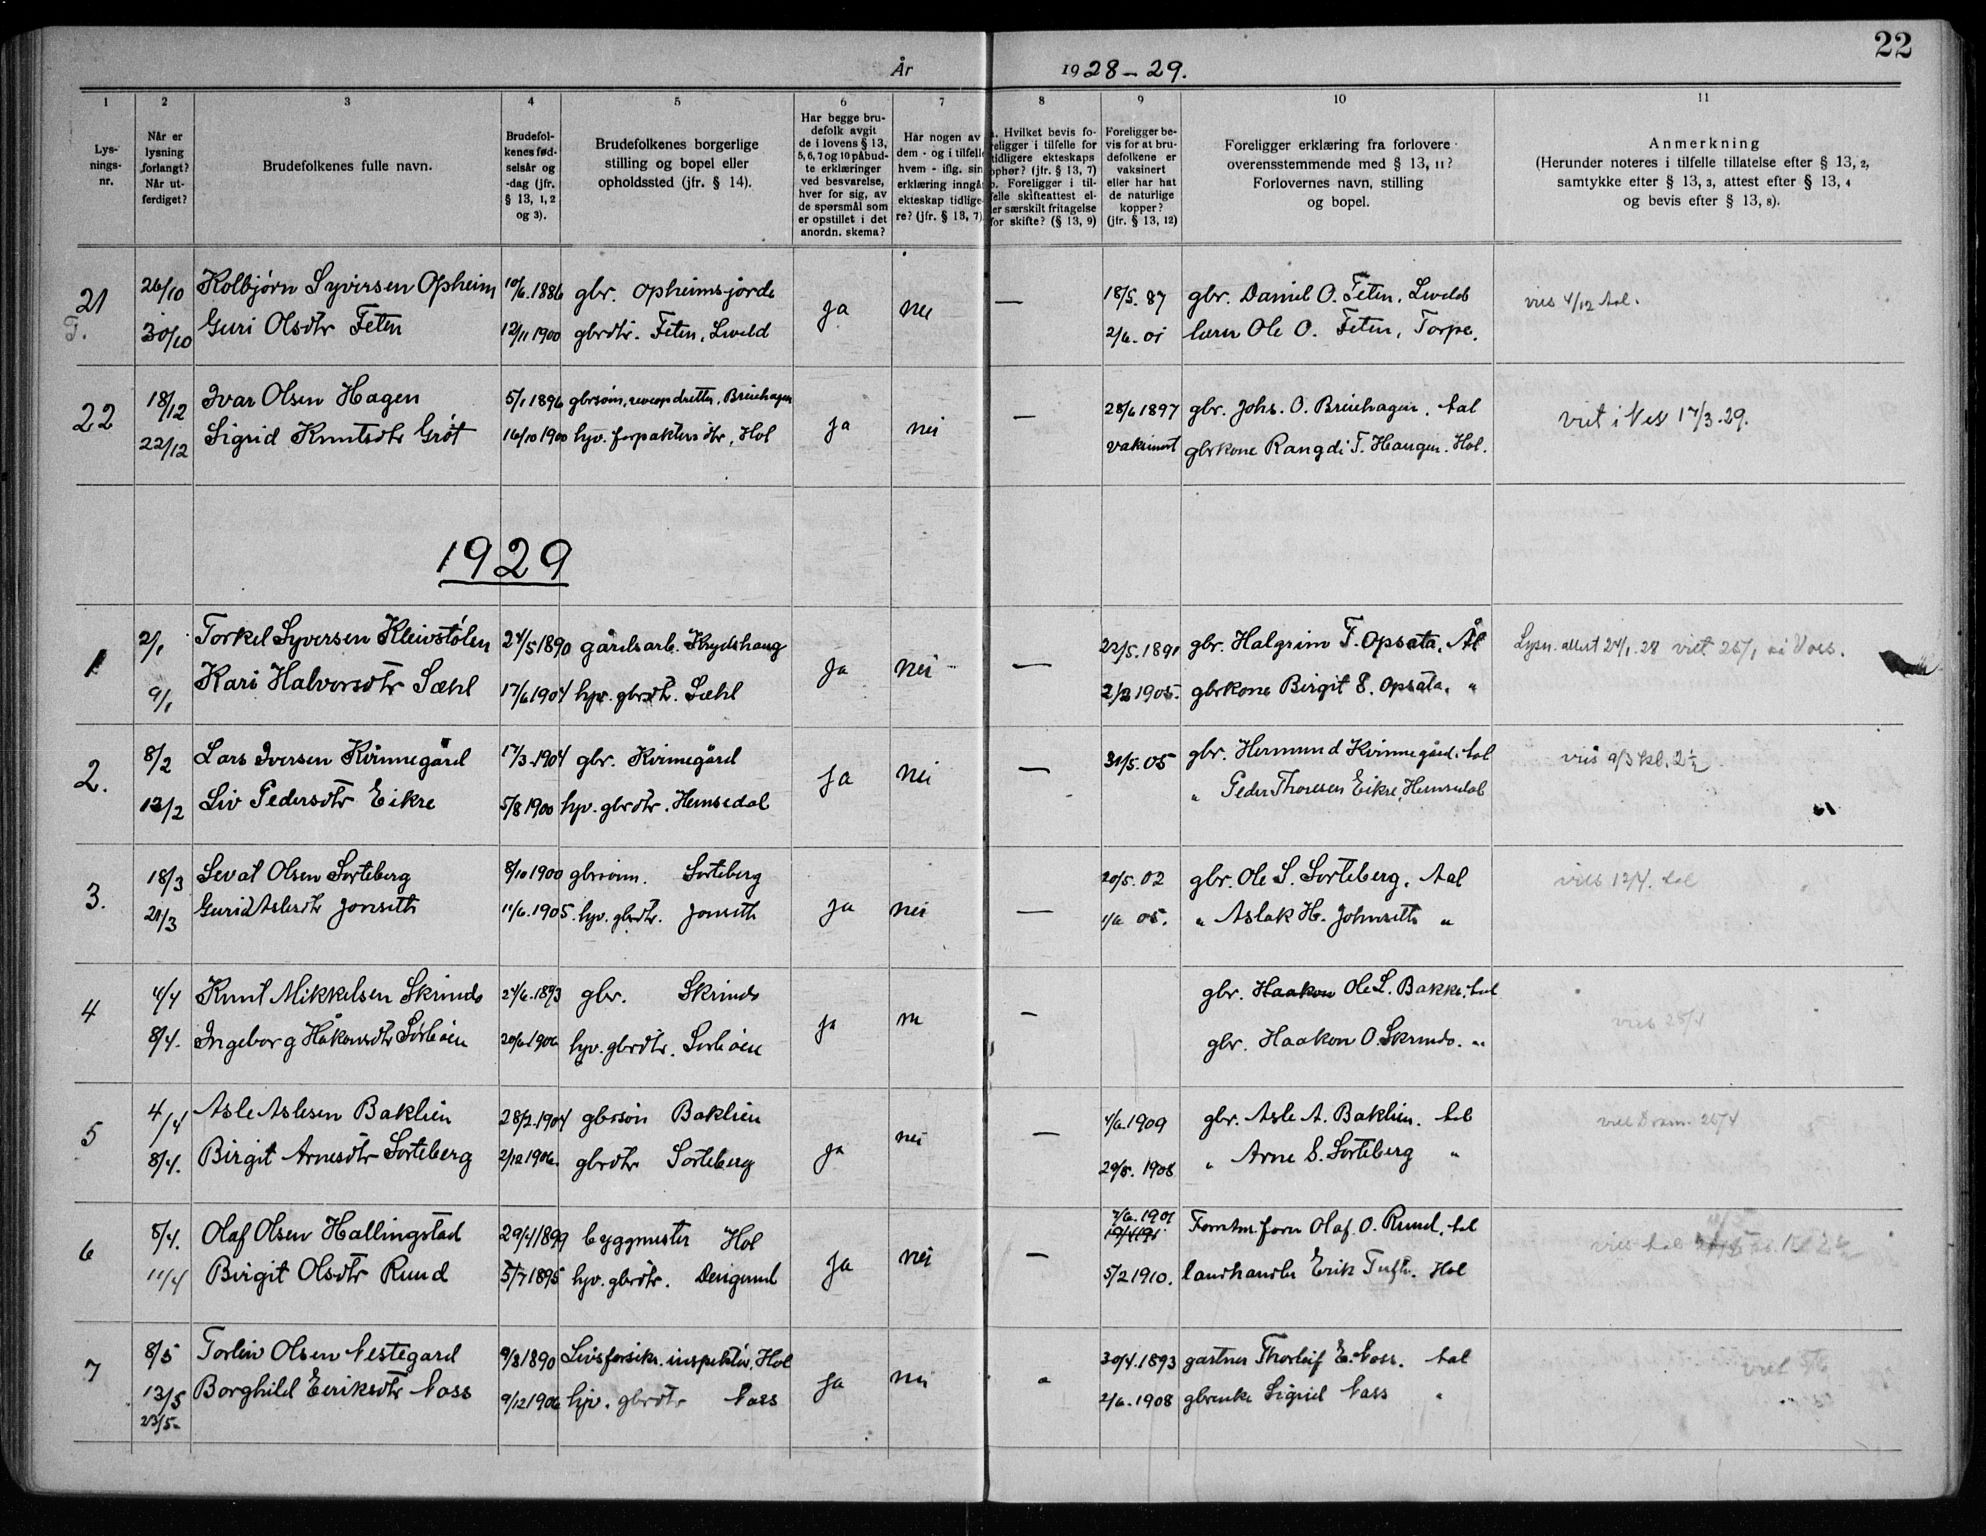 22
År 1928-29.
1 2 3 4 5 6 7 8 9 10 11
Lysnings-nr.
Når er lysning forlangt? Når utferdiget?
Brudefolkenes fulle navn.
Brudefolkenes fødselsår og -dag (jfr. § 13, 1, 2 og 3).
Brudefolkenes borgerlige stilling og bopel eller opholdssted (jfr. § 14).
Har begge brudefolk avgit de i lovens § 13, 5, 6, 7 og 10 påbudte erklæringer ved besvarelse, hver for sig, av de spørsmål som er opstillet i det anordn. skema?
Har nogen av dem - og i tilfelle hvem - iflg. sin erklæring inngått ekteskap tidligere? (jfr. § 13, 7).
Hvilket bevis foreligger i tilfelle for tidligere ekteskaps ophør? (jfr. § 13, 7) b. Foreligger i tilfelle skifteattest eller særskilt fritagelse for skifte? (§ 13, 9)
Foreligger bevis for at brudefolkene er vaksinert eller har hat de naturlige kopper? (jfr. § 13, 12)
Foreligger erklæring fra forlovere overensstemmende med § 13, 11? Forlovernes navn, stilling og bopel.
Anmerkning (Herunder noteres i tilfelle tillatelse efter § 13, 2, samtykke efter § 13, 3, attest efter § 13, 4 og bevis efter § 13, 8).
21 26/10 Kolbjørn Syversen Opheim 10/6.1886 gbr. Opheimsjorde ja nei — 18/5.87 gbr. Daniel O. Feten, Leveld vies 4/12 Aal.
T. 30/10 Guri Olsdtr Feten 12/11 1900 gbrdtr. Feten, Leveld 2/6.01 lærer Ole O. Feten, Torpe.
22 18/12 Ivar Olsen Hagen 5/1 1896 gbrsøn, reveopdretter, Breiehagen ja nei — 28/6 1897 gbr. Johs. O. Breiehagen. Aal viet i Nes 17/3.29.
22/12 Sigrid Knutsdtr Grøt 16/10 1900 hjv. forpakterdtr, Hol vaksinert gbrkone Rangdi T. Haugen. Hol.
1929
1 2/1 Torkel Syversen Kleivstølen 24/5 1890 gårdsarb. Kydshaug ja nei — 22/5.1891 gbr. Halgrim T. Opsata. Ål Lysn. attest 24/1.28 viet 25/1 i Voss.
9/1 Kari Halvorsdtr Sæhl 17/6 1904 hjv. gbrdtr. Sæhl 2/2 1905. gbrkone Birgit E. Opsata. "
2. 8/2 Lars Iversen Kvinnegård 17/3.1904 gbr. Kvinnegård ja nei — 31/5.05 gbr. Hermund Kvinnegård. Aal vies 9/3 kl. 2½.
13/2 Liv Pedersdtr Eikre 5/8 1900 hjv. gbrdtr. Hemsedal " Peder Thoresen Eikre, Hemsedal
3. 18/3 Sevat Olsen Sorteberg 8/10 1900 gbrsønn. Sorteberg ja nei — 20/5.02 gbr. Ole S. Sorteberg. Aal vies 12/4. Aal
21/3 Gurid Aslesdtr Jonseth 11/6.1905. hjv. gbrdtr. Jonseth 1/6 05. " Aslak H. Johnseth "
4 4/4 Knut Mikkelsen Skrindo 24/6.1893 gbr. Skrindo ja n — gbr. Haakon Ole L. Bakke. Aal vies 28/4
8/4. Ingeborg Håkonsdtr Sørbøen 20/6 1906 hjv. gbrdtr. Sørbøen gbr. Haakon O. Skrindo. "
5 4/4 Asle Aslesen Baklien 28/2.1904 gbrsøn Baklien ja nei — 4/6.1909 gbr. Asle A. Baklien. Aal vies Dram. 25/4
8/4. Birgit Arnesdtr Sorteberg 2/12 1906. gbrdtr Sorteberg 29/5. 1908 " Arne S. Sorteberg "
6 5/4. Olaf Olsen Hallingstad 29/4 1899 byggmester Hol ja nei — 2/6.1901 Olaf O. Ruud. Aal vies Aal
11/4 Birgit Olsdtr Ruud 5/7 1895 hjv. gbrdtr. 5/2 1910. landhandler Erik Tufte. Hol
7 8/5 Torleiv Olsen Nestegard 9/3 1890 Livsforsikr. inspektør, Hol ja nei " 30/4.1893 gartner Thorleif E. Noss. Aal viet 5/6
13/5 Borghild Eeriksdtr Noss 9/12 1906 hjv. gbrdtr Noss 2/6.1908 gbrenke Sigrid Noss "
23/5-